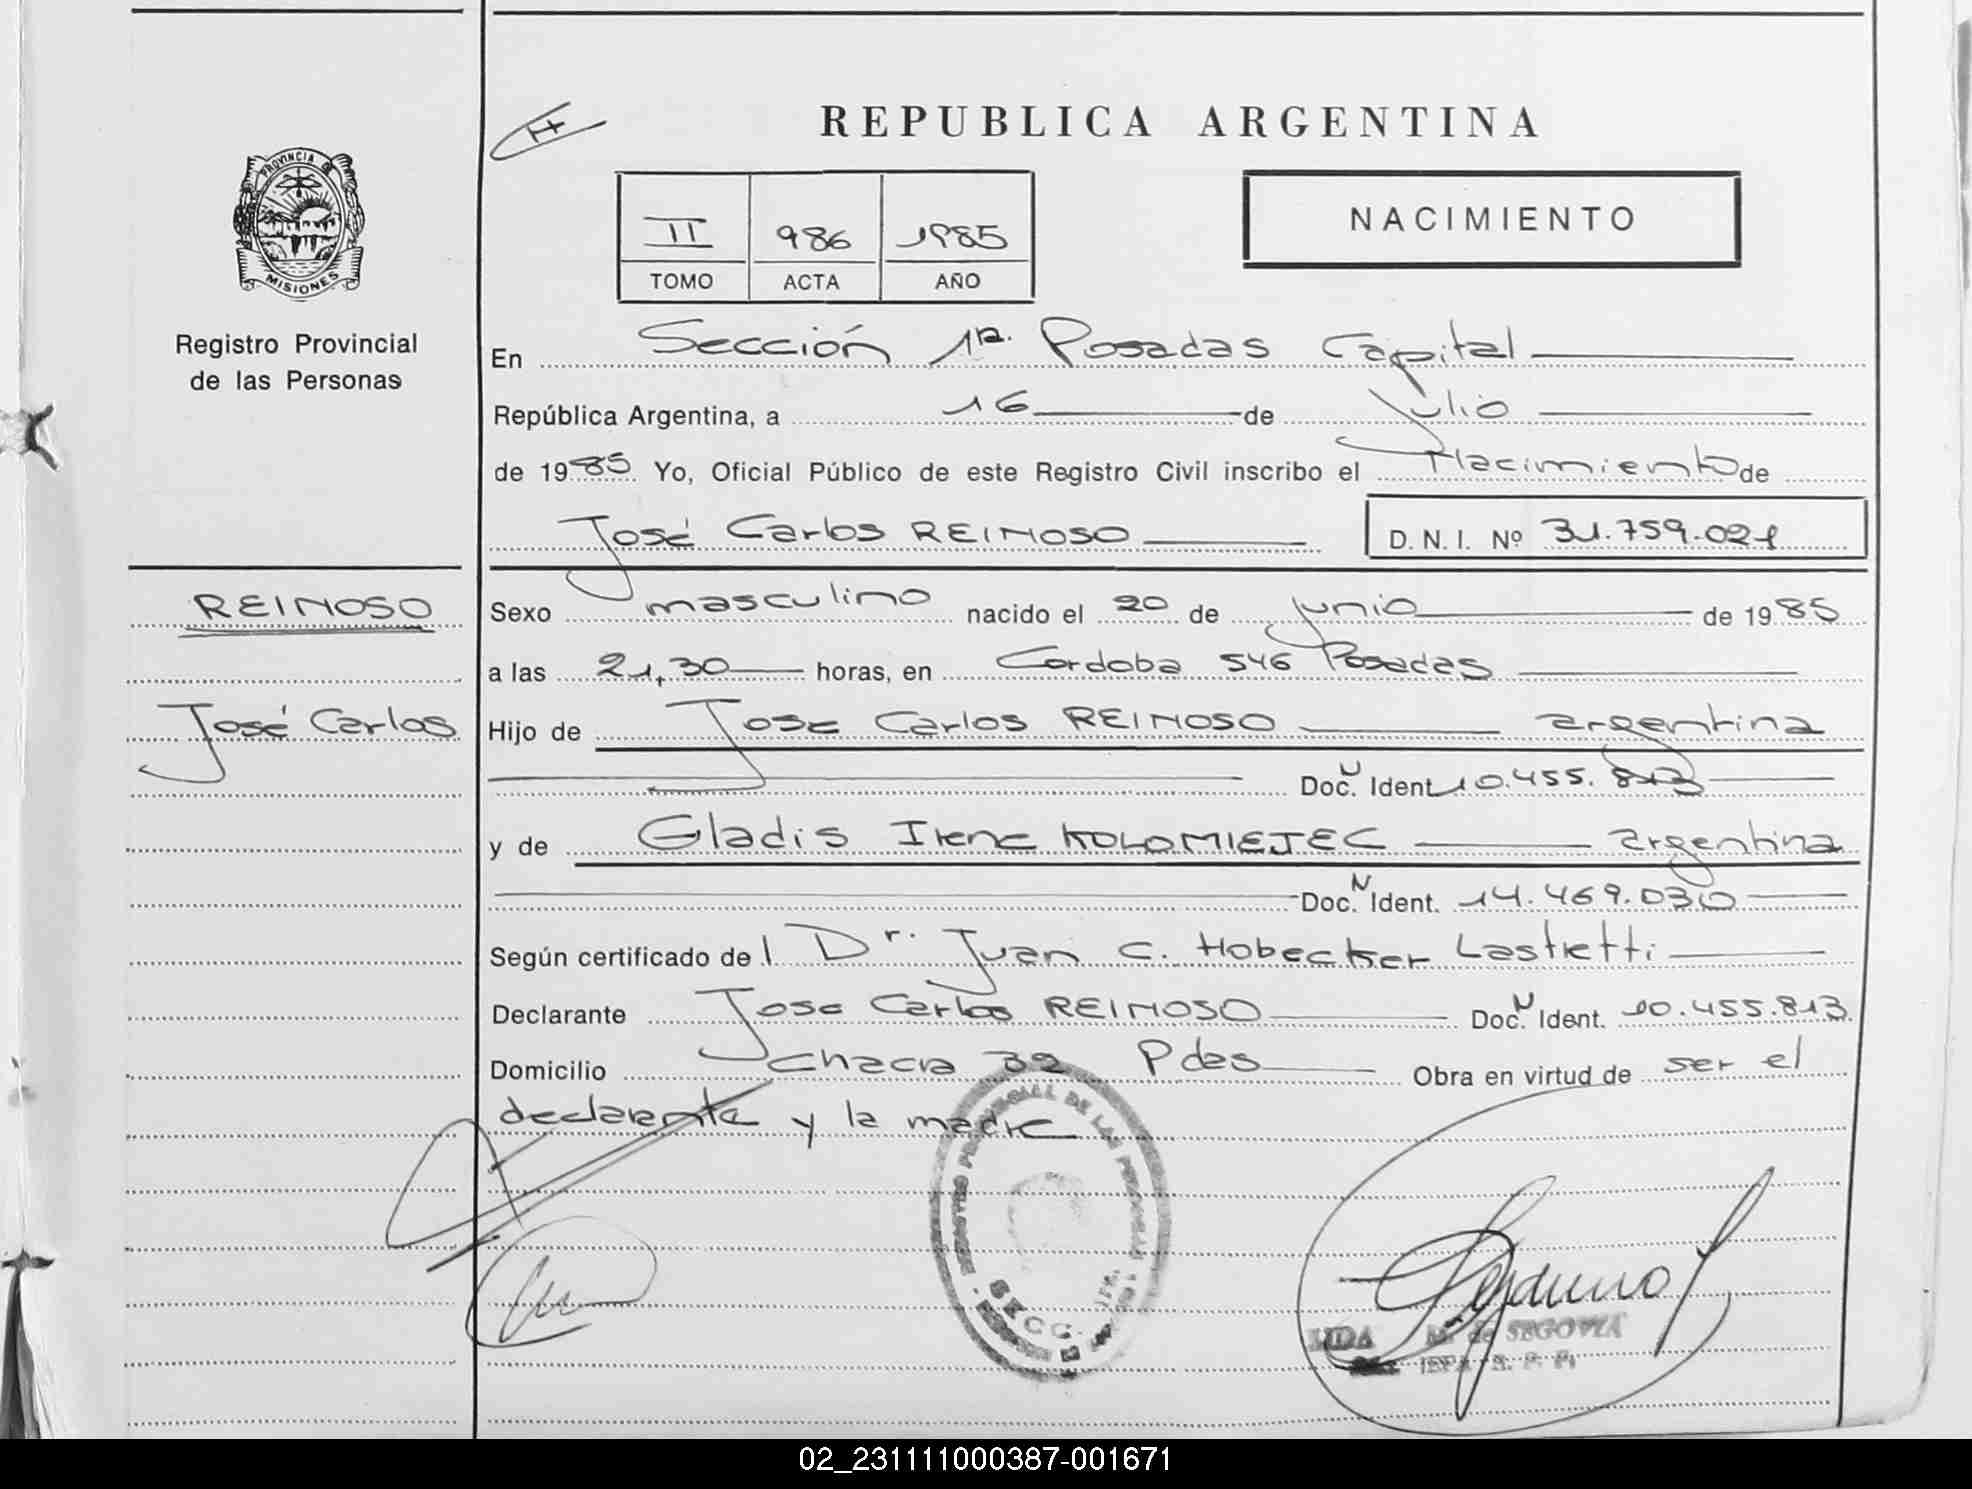 REPUBLICA ARGENTINA
PROVINCIA DE
MISIONES
II 986 1985
TOMO ACTA AÑO
NACIMIENTO
Registro Provincial
de las Personas
En Sección 1ra. Posadas Capital
República Argentina, a 16 de julio
de 1985 Yo, Oficial Público de este Registro Civil inscribo el Nacimiento de
José Carlos REINOSO D. N. I. Nº 31.759.021
REINOSO
José Carlos
Sexo masculino nacido el 20 de junio de 1985
a las 21,30 horas, en Cordoba 546 Posadas
Hijo de Jose Carlos REINOSO argentina
Doc. N Ident. 10.455.813
y de Gladis Irene KOLOMIEJEC argentina
Doc. N Ident. 14.469.030
Según certificado del Dr. Juan C. Hobecker Lastretti
Declarante Jose Carlos REINOSO Doc. N Ident. 10.455.813
Domicilio chacra 32 Pdas Obra en virtud de ser el
declarante y la madre
REGISTRO PROVINCIAL DE LAS PERSONAS
SECC. 1ra.
LIDA M. de SEGOVIA
02_231111000387-001671